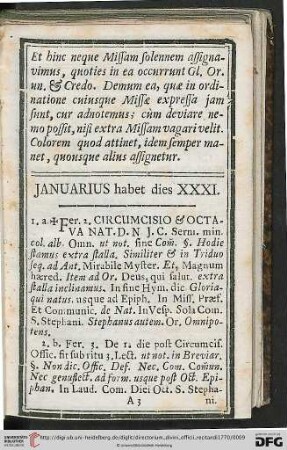 Et hinc neque Missam solennem assigna-
vimus, quoties in ea occurrunt Gl, Or.
un. & Credo. Demum ea, quæ in ordi-
natione cuiusque Missæ expressa jam
sunt, cur adnotemus; cùm deviare ne-
mo possit, nisi extra Missam vagari velit.
Colorem quod attinet, idem semper ma-
net, quousque alius assignetur.
JANUARIUS habet dies XXXI.
1. a. ✠ Fer. 2. CIRCUMCISIO & OCTA-
VA NAT. D. N J. C. Sem. min.
col. alb. Omn. ut not. sine Com. §. Hodie
stamus extra stalla. Similiter & in Triduo
seq. ad Ant. Mirabile Myster. Et, Magnum
hæred. Item ad Or. Deus, qui salut. extra
stalla inclinamus. In fine Hym. dic Gloria,
qui natus. usque ad Epiph. In Miss. Præf.
Et Communic. de Nat. In Vesp. Sola Com.
S. Stephani. Stephanus autem. Or, Omnipo-
tens.
2. b. Fer. 3. De 12. die post Circumcis.
Offic. fit sub ritu 3. Lect. ut not. in Breviar.
§. Non dic. Offic. Def. Nec. Com. Com̃un.
Nec genuflect. ad form. usque post Oct. Epi-
phan. In Laud. Com. Diei Oct. S. Stepha-
A 3 ni.
http://digi.ub.uni-heidelberg.de/diglit/directorium_divini_officii_recitandi1770/0009
© Universitätsbibliothek Heidelberg
UNIVERSITÄTS-
BIBLIOTHEK
HEIDELBERG
gefördert durch die
DFG